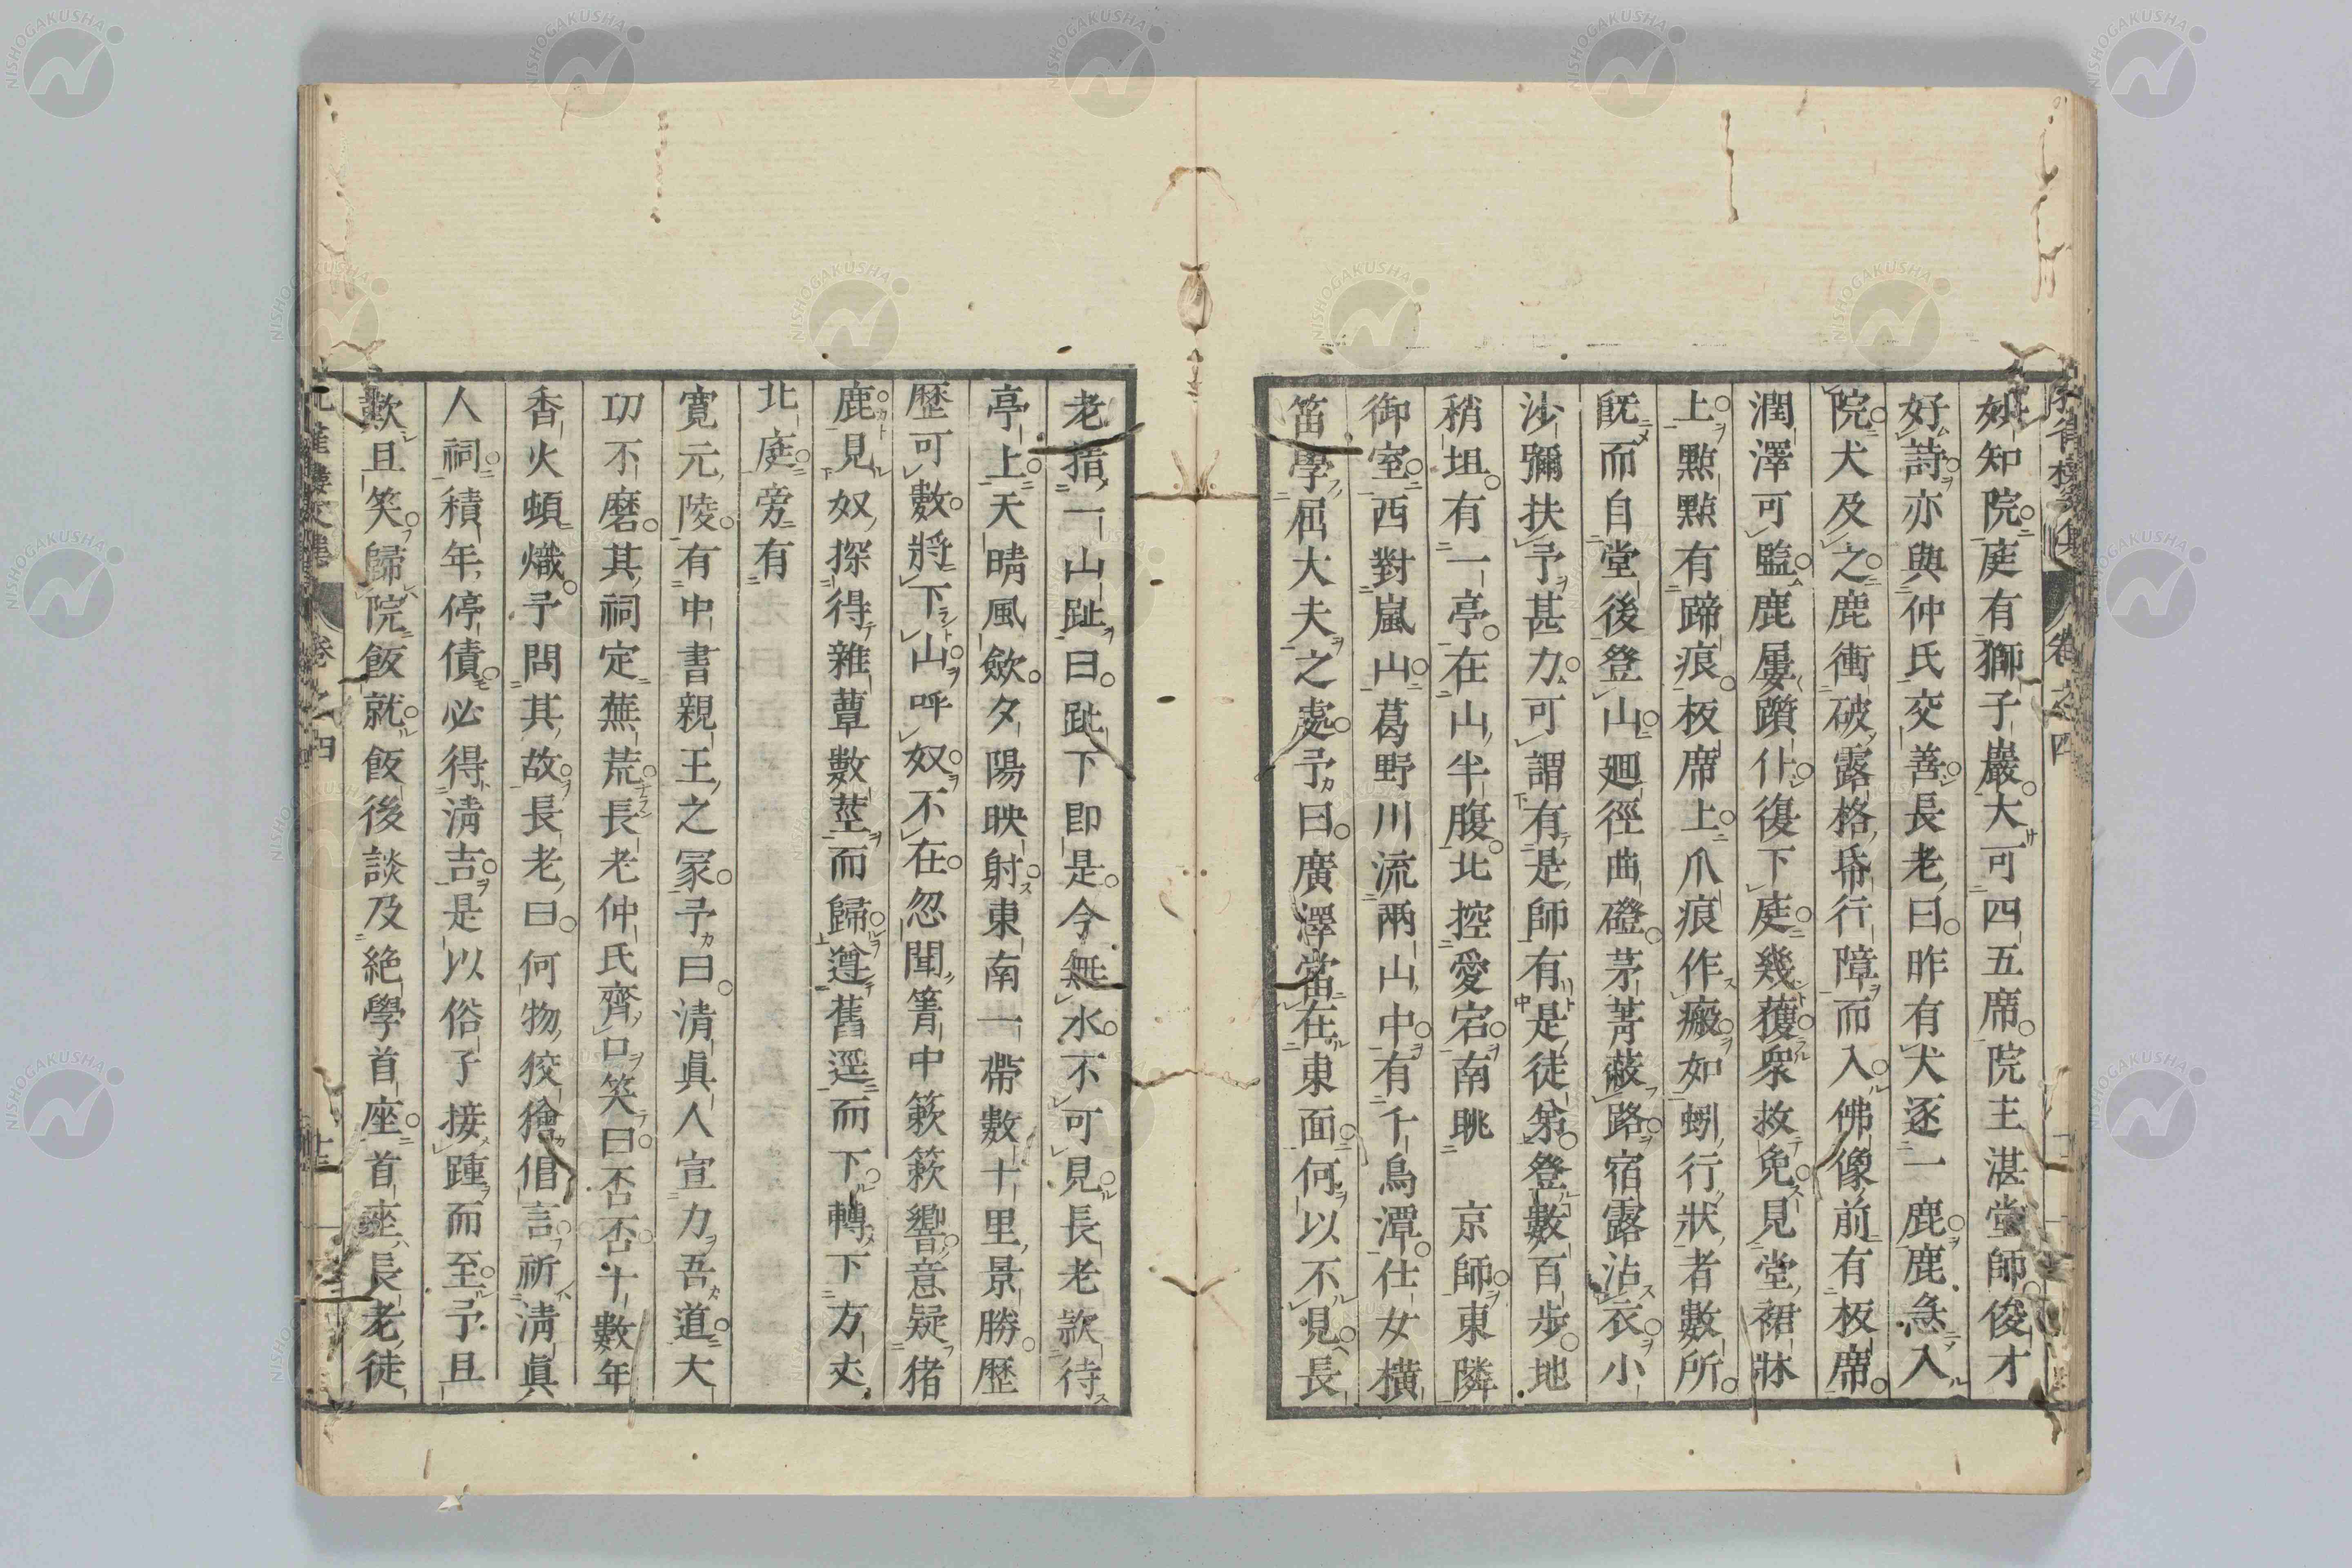 妙知院庭有獅子巖大可四五席院主湛堂師俊才
好詩亦與仲氏交善長老曰昨有犬逐一鹿鹿急入
院犬及之鹿衝破露格帋行障而入佛像前有板席
潤澤可鑑鹿屢躓仆復下庭幾獲衆救免見堂裙牀
上點點有蹄痕板席上爪痕作瘢如蚓行狀者數所
既而自堂後登山廻徑曲磴茅菁蔽路宿露沾衣小
沙彌扶予甚力可謂有是師有是徒矣登數百步地
稍坦有一亭在山半腹北控愛宕南眺 京師東隣
御室西對嵐山葛野川流兩山中有千鳥潭仕女橫
笛學屈大夫之處予曰廣澤當在東面何以不見長
老指一山趾曰趾下即是今無水不可見長老款待
亭上天晴風歛夕陽映射東南一帶數十里景勝歷
歷可數將下山呼奴不在忽聞箐中簌簌響意疑猪
鹿見奴探得雜蕈數莖而歸遵舊逕而下轉下方丈
北庭旁有
寬元陵有中書親王之冢予曰清眞人宣力吾道大
功不磨其祠定蕪荒長老仲氏齊口笑曰否否十數年
香火頓熾予問其故長老曰何物狡獪倡言祈清眞
人祠積年停債必得清吉是以俗子接踵而至予且
歎且笑歸院飯就飯後談及絕學首座首座長老徒
卷之四
卷之四
NISHOGAKUSHA